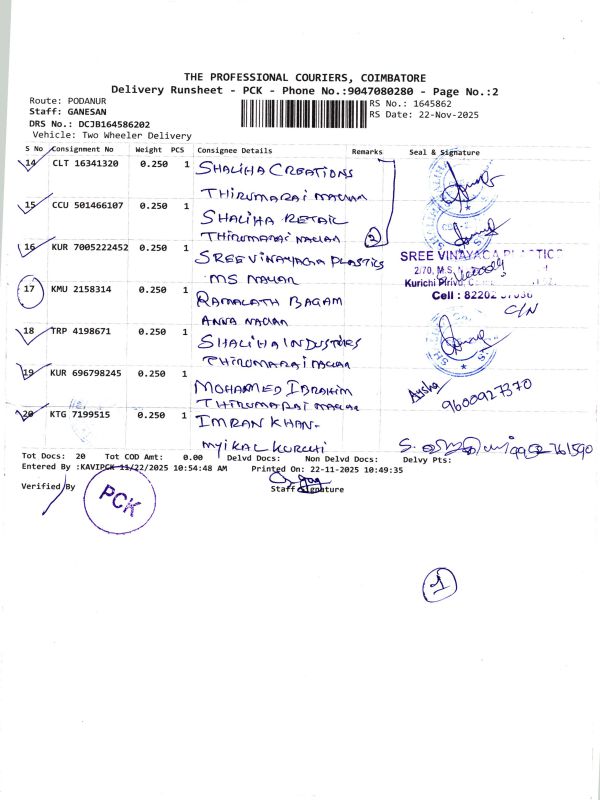 THE PROFESSIONAL COURIERS, COIMBATORE
Delivery Runsheet - PCK - Phone No.:9047080280 - Page No.:2
Route: PODANUR
RS No.: 1645862
Staff: GANESAN
RS Date: 22-Nov-2025
DRS No.: DCJB164586202
Vehicle: Two Wheeler Delivery
S No Consignment No Weight PCS Consignee Details Remarks Seal & Signature
14 CLT 16341320 0.250 1 SHALIHA CREATIONS
THIRUMARAI NAGAR
15 CCU 501466107 0.250 1 SHALIHA RETAIL
THIRUMARAI NAGAR 2
16 KUR 7005222452 0.250 1 SREE VINAYAGA PLASTICS
MS NAGAR
SREE VINAYACA PLASTICS
2/70, M.S.
Kurichi Pirivu,
Cell : 82202
C/N
17 KMU 2158314 0.250 1 RAMALATH BAGAM
ANNA NAGAR
18 TRP 4198671 0.250 1 SHALIHA INDUSTRIES
THIRUMARAI NAGAR
19 KUR 696798245 0.250 1 MOHAMED IBRAHIM
THIRUMARAI NAGAR
Aysha
9600927370
20 KTG 7199515 0.250 1 IMRAN KHAN-
MYIKAL KURCHI
Tot Docs: 20 Tot COD Amt: 0.00 Delvd Docs: Non Delvd Docs: Delvy Pts:
Entered By :KAVIPCK 11/22/2025 10:54:48 AM Printed On: 22-11-2025 10:49:35
Verified By
Staff Signature
PCK
1